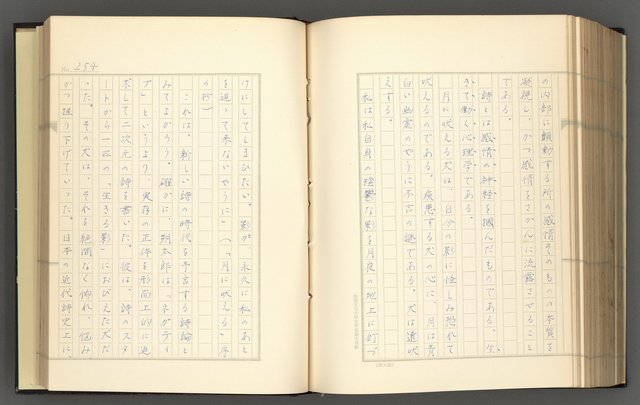 の内部に顫動する所の感情そのものの本質を
凝視し、かつ感情をさかんに流露させること
である。
詩とは感情の神経を掴んだものである。生
きて動く心理学である。
月に吠える犬は、自分の影に怪しみ恐れて
吠えるのである。疾患する犬の心に、月は青
白い幽霊のやうに不吉の謎である。犬は遠吠
えする。
私は私自身の陰鬱な影を月夜の地上に釘づ
No. 254
けにしてしまひたい。影が、永久に私のあと
を追って来ないやうに」(「月に吠える」序
の抄)
これは、新しい詩の時代を予言する詩論と
みてよかろう。確かに、朔太郎は「ネガティ
ブ」というより、実存の正体を形而上的に追
求して二次元の詩を書いた。彼は、詩のスタ
ートから一匹の「生きる影」におびえた犬だ
った。その犬は、それを絶間なく怖れ、悩み、
かつ掘り下げていった。日本の近代詩史上に、